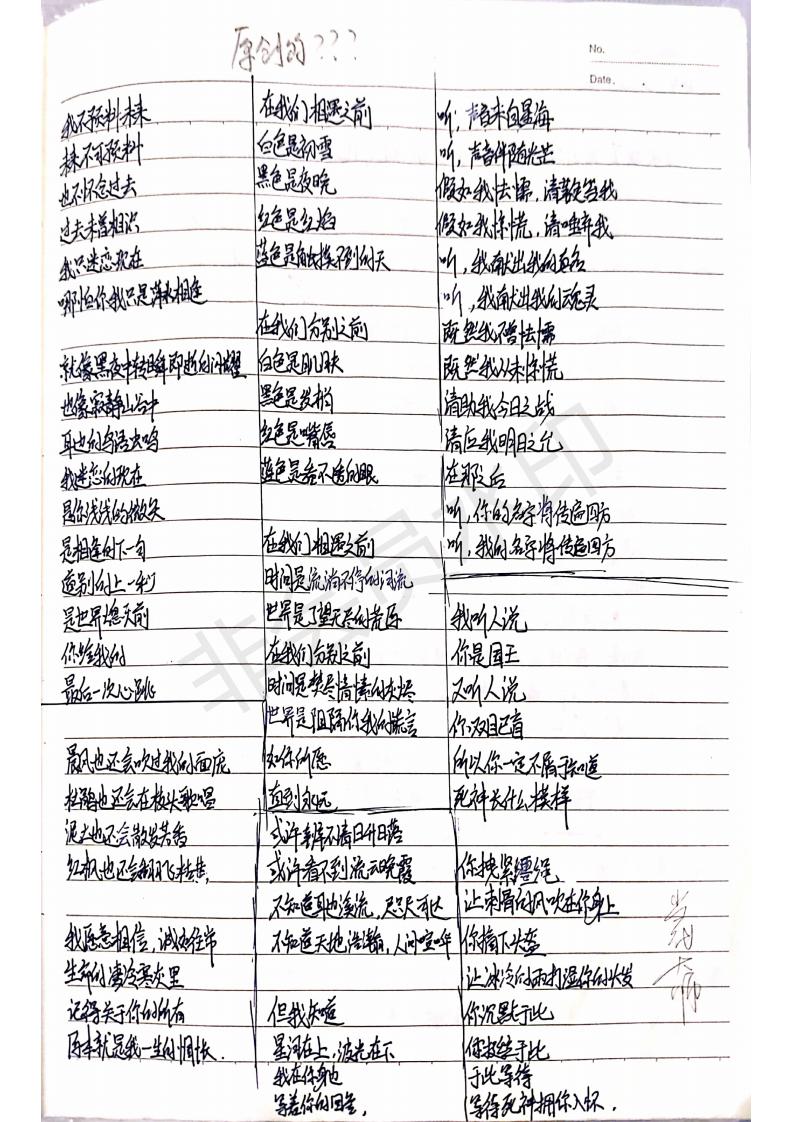 原创的???
No.
Date.
我不预料未来
未来不可预料
也不怀念过去
过去未曾相识
我只迷恋现在
哪怕你我只是萍水相逢
就像黑夜中转瞬即逝的闪耀
也像寂静山谷中
耳边的鸟语虫鸣
我迷恋的现在
是你浅浅的微笑
是相逢的下一句
道别的上一秒
是世界熄灭前
你给我的
最后一次心跳
晨风也还会吹过我的面庞
杜鹃也还会在枝头歌唱
泥土也还会散发芳香
红枫也还会翩飞枯黄,
我愿意相信,诚如往昔
生命的凄冷寒灰里
记得关于你的所有
原本就是我一生的惆怅.
在我们相遇之前
白色是初雪
黑色是夜晚
红色是红焰
蓝色是触摸不到的天
在我们分别之前
白色是肌肤
黑色是发梢
红色是嘴唇
蓝色是看不透的眼
在我们相遇之前
时间是流淌不停的河流
世界是了望无尽的荒原
在我们分别之前
时间是焚尽情愫的灰烬
世界是阻隔你我的谎言
如你所愿
直到永远
或许看不清日升日落
或许看不到流云晚霞
不知道耳边溪流,咫尺可达
不知道天地浩瀚,人间喧哗
但我知道
星河在上,波光在下
我在你身边
等着你的回答,
听,声音来自星海
听,声音伴随光芒
假如我怯懦,请鞭笞我
假如我惊慌,请唾弃我
听,我献出我的真名
听,我献出我的魂灵
既然我不曾怯懦
既然我从未惊慌
请助我今日之战
请应我明日之允
在那之后
听,你的名字将传遍四方
听,我的名字将传遍四方
我听人说
你是国王
又听人说
你双目已盲
所以你一定不屑于知道
死神长什么模样
你拽紧缰绳
让刺骨的风吹在你身上
你摘下头盔
让冰冷的雨打湿你的头发
你沉默于此
你求终于此
于此等待
等待死神拥你入怀.
非会员水印